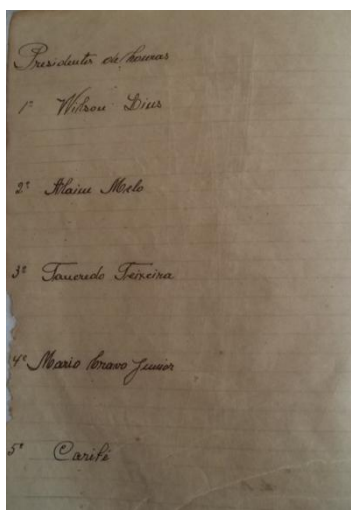 Presidentes de honras
1º Wilson Dius
2º Alaim Melo
3º Tancredo Teixeira
4º Mario Bravo Junior
5º Carifé